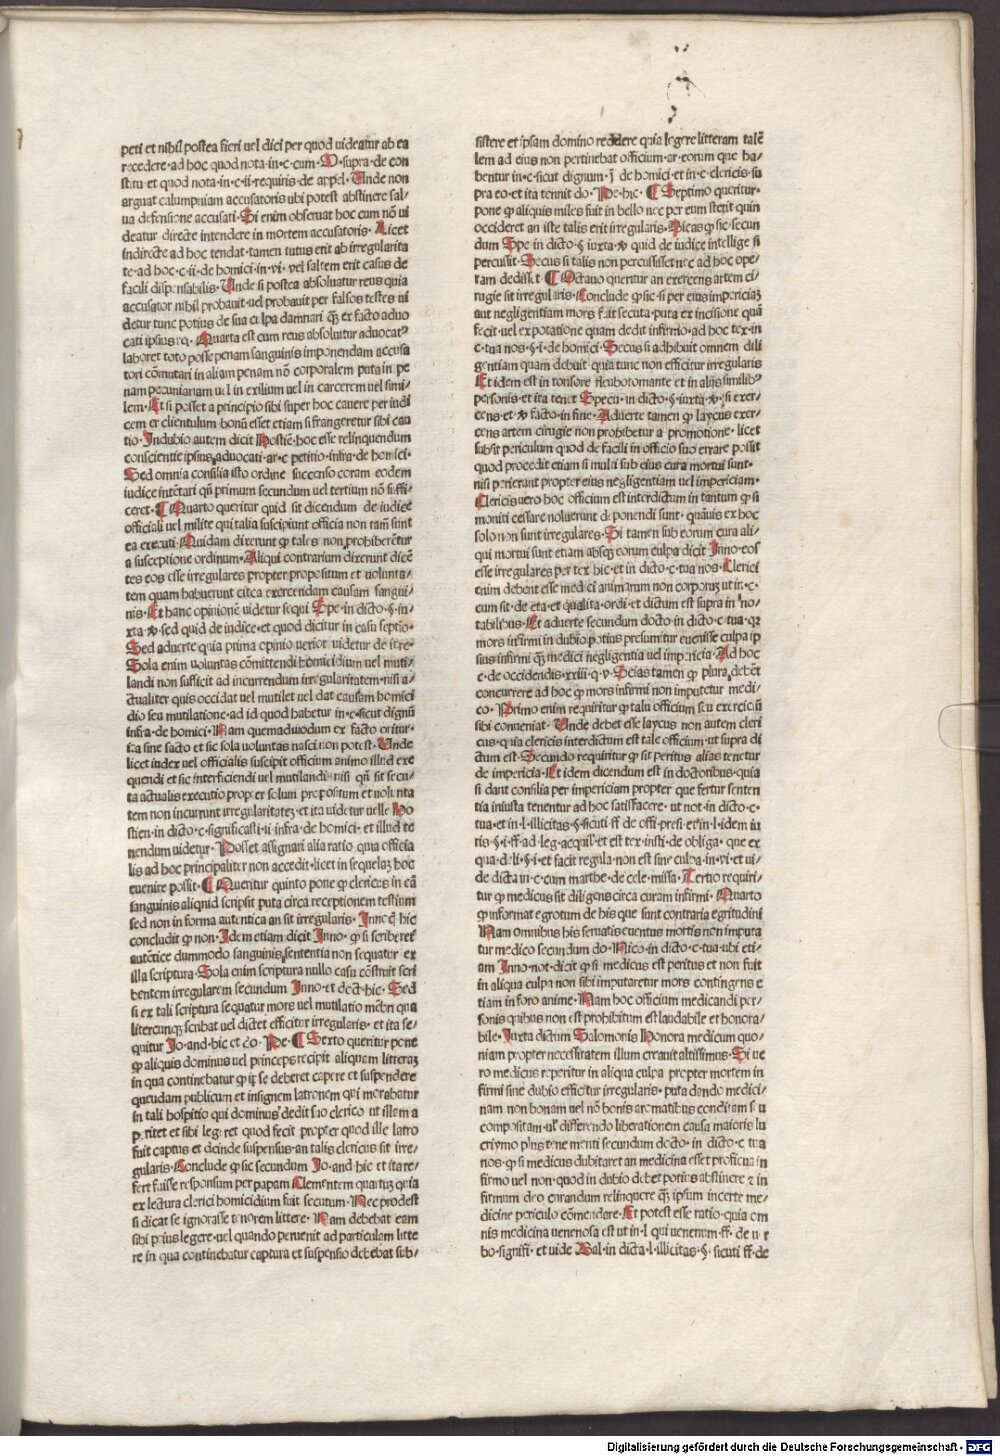 peti et nihil postea fieri uel dici per quod uideatur ab ea
recedere·ad hoc quod nota·in·c·cum·M·supra·de con
stitu·et quod nota·in·c·ii·requiris·de appel·Unde non
arguat calumpniam accusatoris ubi potest abstinere sal/
ua defensione accusati·Si enim obseruat hoc cum nō ui
deatur directe intendere in mortem accusatoris·Licet
indirecte ad hoc tendat·tamen tutus erit ab irregularita
te·ad hoc·c·ii·de homici·in·vi·vel saltem erit casus de
facili dispensabilis·Unde si postea absoluatur reus quia
accusator nihil probauit·uel probauit per falsos testes ui
detur tunc potius de sua culpa damnari qȝ ex facto aduo
cati ipsius rei·Quarta est cum reus absoluitur aduocatꝰ
laboret toto posse penam sanguinis imponendam accusa
tori cōmutari in aliam penam nō corporalem puta in pe
nam pecuniariam uel in exilium uel in carcerem uel simi/
lem·Et si posset a principio sibi super hoc cauere per iudi
cem et clientulum·bonū esset etiam si frangeretur sibi cau
tio·Indubio autem dicit Hostiē·hoc esse relinquendum
conscientie ipsius aduocati·ar·c·petitio·infra·de homici·
Sed omnia consilia isto ordine succenso coram eodem
iudice intētari qñ primum secundum uel tertium nō suffi/
ceret·¶ Quarto queritur quid sit dicendum de iudice
officiali uel milite qui talia suscipiunt officia non tamē sunt
ea executi·Quidam dixerunt ꝙ tales non prohiberētur
a susceptione ordinum·Aliqui contrarium dixerunt dicē
tes eos esse irregulares propter propositum et uolunta/
tem quam habuerunt citca exercendam causam sangui/
nis·Et hanc opinionē uidetur sequi Spe·in dicto·§·iu/
xta·ꝟ·sed quid de iudice·et quod dicitur in casu septio·
Sed aduerte quia prima opinio uerior uidetur de iure·
Sola enim uoluntas cōmittendi homicidium uel muti/
landi non sufficit ad incurrendum irregularitatem·nisi a/
ctualiter quis occidat uel mutilet uel dat causam homici
dio seu mutilatione·ad id quod habetur in·c·sicut dignū
infra·de homici·Nam quemadmodum ex facto oritur·
ita sine facto et sic sola uoluntas nasci non potest·Unde
licet iudex uel officialis suscipit officium animo illud exe
quendi et sic interficiendi uel mutilandi·nisi qñ sit secu/
ta actualis executio propter solum propositum et uolunta
tem non incurrunt irregularitateȝ·et ita uidetur uelle Ho
stien·in dicto·c·significasti·ii·infra·de homici·et illud te
nendum uidetur·Posset assignari alia ratio quia officia
lis ad hoc principaliter non accedit·licet in sequelaȝ hoc
euenire possit·¶ Queritur quinto pone ꝙ clericus in cā
sanguinis aliquid scripsit puta circa receptionem testium
sed non in forma autentica an sit irregularis·Innoꝯ hic
concludit ꝙ non·Idem etiam dicit Inno·ꝙ si scriberet
autētice dummodo sanguinis sententia non sequatur ex
illa scriptura·Sola enim scriptura nullo casu cōstruit scri
bentem irregularem secundum Inno·et doct·hic·Sed
si ex tali scriptura sequatur mors uel mutilatio mēbri qua
litercunqȝ scribat uel dictet efficitur irregularis·et ita se/
quitur Jo·and·hic et do·Pe·¶ Sexto queritur pone
ꝙ aliquis dominus uel princeps recipit aliquem litteraȝ
in qua continebatur ꝙ ip̄e deberet capere et suspendere
quendam publicum et insignem latronem qui morabatur
in tali hospitio qui dominus dedit suo clerico ut illam a
periret et sibi legeret quod fecit propter quod ille latro
fuit captus et deinde suspensus·an talis clericus sit irre/
gularis·Conclude ꝙ sic secundum Jo·and·hic et ita re/
fert fuisse responsum per papam Clementem quartuȝ quia
ex lectura clerici homicidium fuit secutum·Nec prodest
si dicat se ignorasse tenorem littere·Nam debebat eam
sibi prius legere·uel quando peruenit ad particulam litte
re in qua continebatur captura et suspensio debebat sub/
sistere et ipsam domino reddere quia legere litteram talē
lem ad eius non pertinebat officium·ar·eorum que ha/
bentur in·c·sicut dignum·j̄·de homici·et in·c·clericis·su
pra eo·et ita tennit do·Pe·hic·¶ Septimo queritur·
pone ꝙ aliquis miles fuit in bello nec per eum stetit quin
occideret an iste talis erit irregularis·Dicas ꝙ sic·secun
dum Spe·in dicto·§·iuxta·ꝟ·quid de iudice intellige si
percussit·Secus si talis non percussisset nec ad hoc ope/
ram dedisset·¶ Octauo queritur an exercens artem ci/
rugie sit irregularis·Conclude ꝙ sic·si per eius impericiaȝ
aut negligentiam mors fuit secuta·puta ex incisione quā
fecit·uel ex potatione quam dedit infirmo·ad hoc tex·in
c·tua nos·§·i·de homici·Secus si adhibuit omnem dili
gentiam quam debuit·quia tunc non efficitur irregularis
Et idem est in tonsore fleubotomante et in alijs similibꝰ
personis·et ita tenet Specu·in dicto·§·iuxta·ꝟ·si exer/
cens·et·ꝟ·facto·in fine·Aduerte tamen ꝙ laycus exer/
cens artem cirugie non prohibetur a promotione·licet
subsit periculum quod de facili in officio suo errare possit
quod procedit etiam si multi sub eius cura mortui sunt·
nisi perierunt propter eius negligentiam uel impericiam·
Clericis uero hoc officium est interdictum in tantum ꝙ si
moniti cessare noluerunt deponendi sunt·quāuis ex hoc
solo non sunt irregulares·Si tamen sub eorum cura ali/
qui mortui sunt etiam absqȝ eorum culpa dicit Inno·eos
esse irregulares per tex·hic·et in dicto·c·tua nos·Clerici
enim debent esse medici animarum non corporuȝ ut in·c·
cum sit·de eta·et qualita·ordi·et dictum est supra in no/
tabilibus·Et aduerte secundum docto·in dicto·c·tua·qꝛ
mors infirmi in dubio potius presumitur euenisse culpa ip
sius infirmi qȝ medici negligentia uel impericia·Ad hoc
c·de occidendis·xxiii·q·v·Scias tamen ꝙ plura debēt
concurrere ad hoc ꝙ mors infirmi non imputetur medi/
co·Primo enim requiritur ꝙ talu officium seu exerciciū
sibi conueniat·Unde debet esse laycus non autem cleri
cus·quia clericis interdictum est tale officium·ut supra di
ctum est·Secundo requiritur ꝙ sit peritus alias tenetur
de impericia·Et idem dicendum est in doctoribus·quia
si dant consilia per impericiam propter que fertur senten
tia iniusta tenentur ad hoc satisfacere·ut not·in dicto·c·
tua·et in·l·illicitas·§·sicuti·ff·de offi·presi·et in·l·idem iu
ris·§·i·ff·ad·leg·acquil·et est tex·insti·de obliga·que ex
qua·deli·§·i·et facit regula·non est sine culpa·in·vi·et ui/
de dicta in·c·cum marthe·de cele·missa·Tertio requiri/
tur ꝙ medicus sit diligens circa curam infirmi·Quarto
ꝙ informat egrotum de his que sunt contraria egritudini
Nam omnibus his seruatis euentus mortis non imputa
tur medico secundum do·Nico·in dicto·c·tua·ubi eti/
am Inno·not·dicit ꝙ si medicus est peritus et non fuit
in aliqua culpa non sibi imputaretur mors contingens e
tiam in foro anime·Nam hoc officium medicandi per/
sonis quibus non est prohibitum est laudabile et honora/
bile·Iuxta dictum Salomonis Honora medicum quo/
niam propter necessitatem illum creauit altissimus·Si ue
ro medicus reperitur in aliqua culpa propter mortem in
firmi sine dubio efficitur irregularis·puta dando medici/
nam non bonam uel nō bonis aromatibus conditam seu
compositam·uel differendo liberationem causa maioris lu
cri·ymo plus tene menti secundum docto·in dicto·c·tua
nos·ꝙ si medicus dubitaret an medicina esset proficua in
firmo uel non·quod in dubio debet potius abstinere ⁊ in
firmum deo curandum relinquere qȝ ipsum incerte me/
dicine periculo cōmendare·Et potest esse ratio·quia om
nis medicina uenenosa est ut in·l·qui uenenum·ff·de uer
bo·signifi·et uide Bal·in dicta·l·illicitas·§·sicuti·ff·de
Digitalisierung gefördert durch die Deutsche Forschungsgemeinschaft · DFG